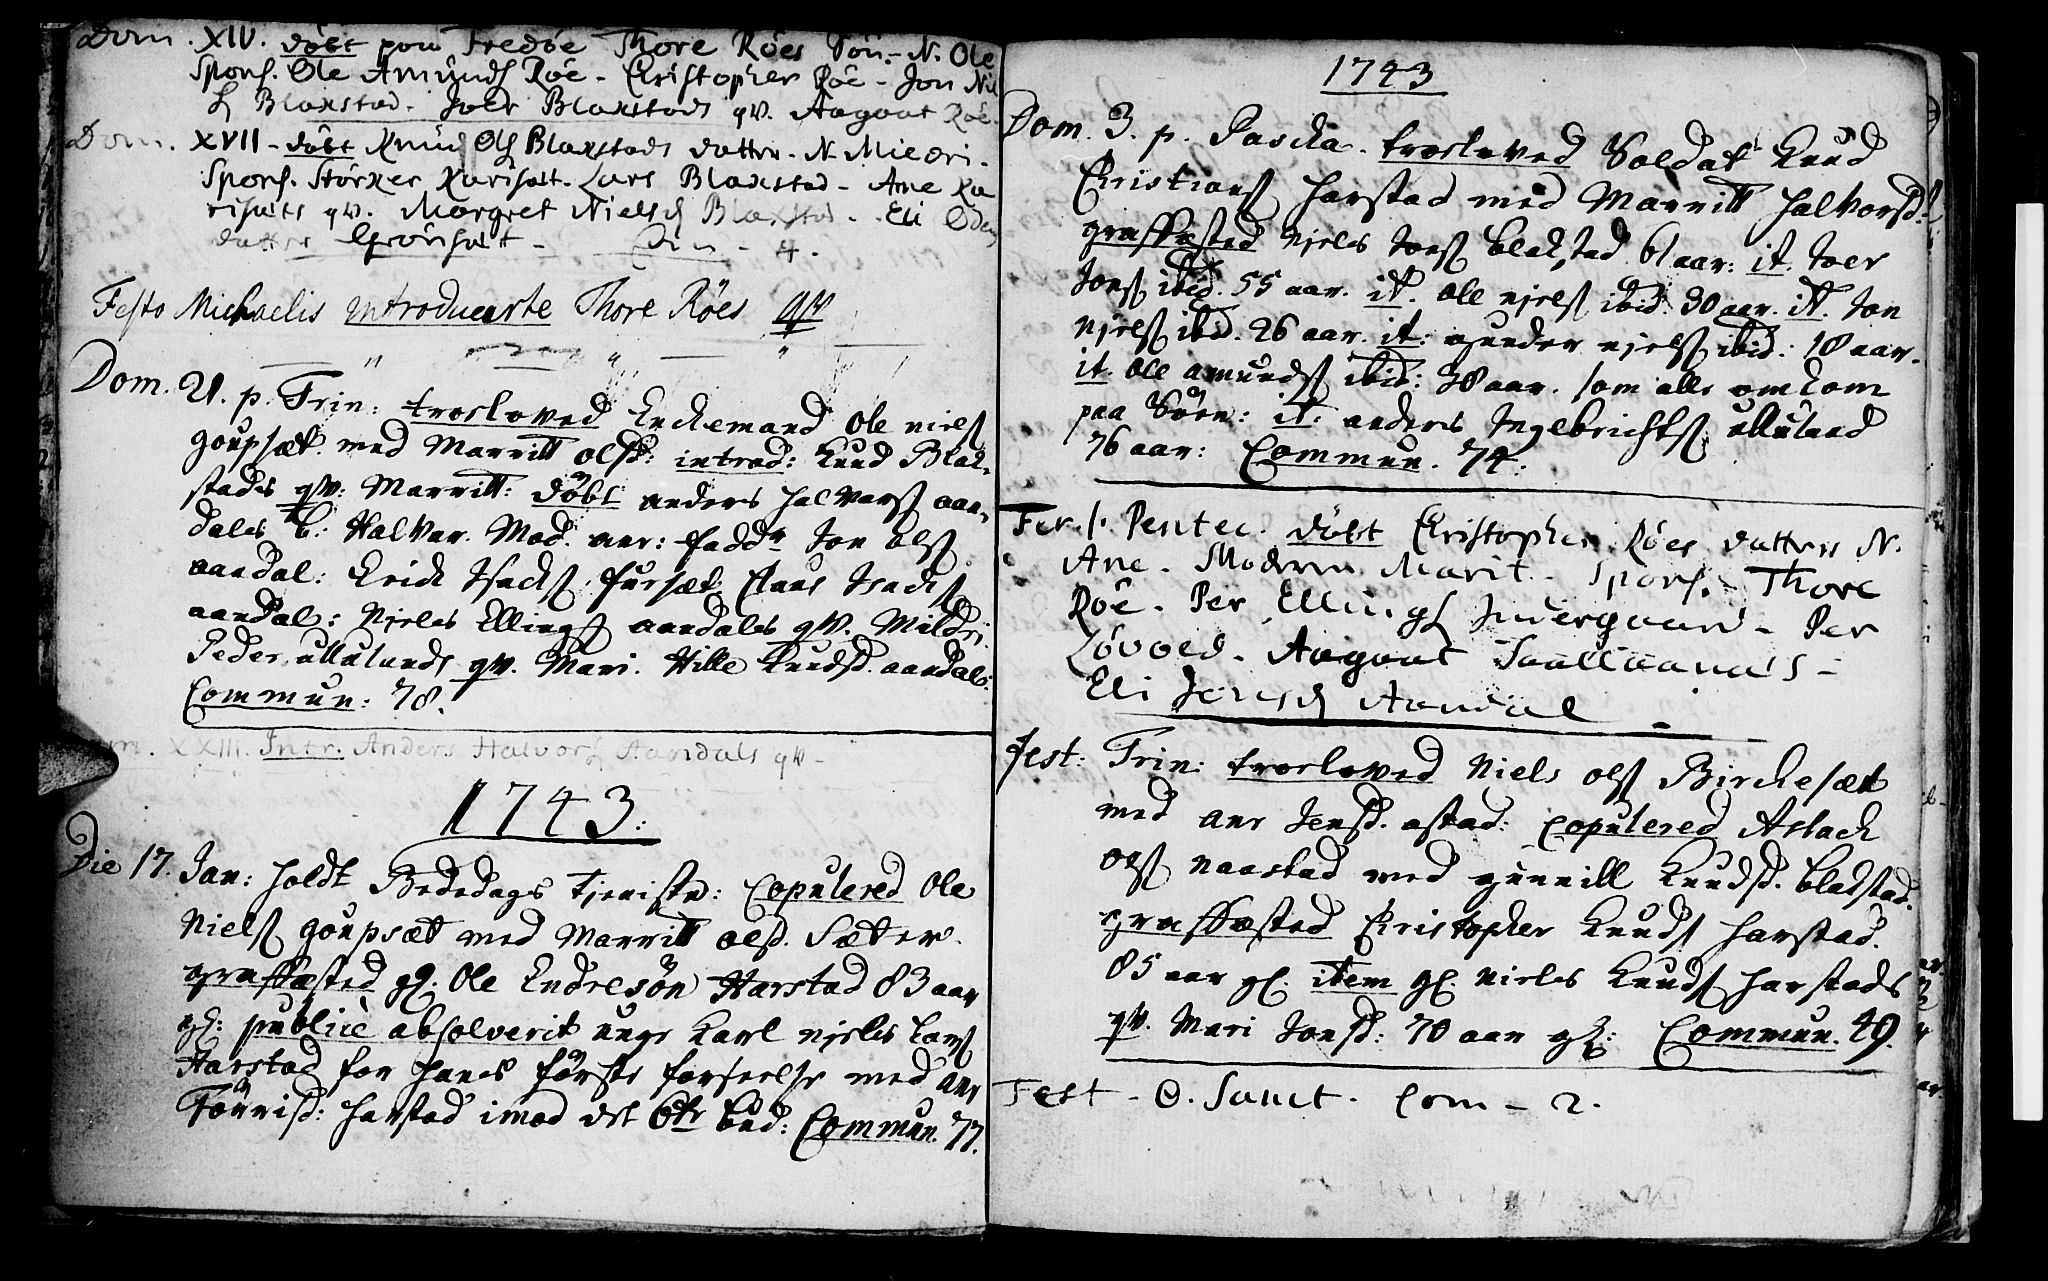 Dom. XIV. døbt paa Fredøe Thore Røes Søn - N. Ole
Spons. Ole Amunds Røe - Christopher Røe - Jon Nie
Blakstad - Joer Blakstads qv. Aagaat Røe.
Dom. XVII - døbt Knud Ols Blakstads datter - N. Mildri -
Spons. Størker Karihat. Lars Blakstad - Ane Ka
rihats qv. Margret Nielsd Blakstad - Eli Oden
datter Grønset - Com - 4.
Festo Michaelis introducerte Thore Røes qv
Dom. 21. p. Trin: troeloved Enchemand Ole niels
goupsæt med Marritt olsd: introd: Knud Blak-
stads qv: Marritt: døbt anders halvors aan-
dales b: Halvar. Mod. anr: fadd: Jon ols
aandal: Erich Isachs fursæt Claus Isachs
aandal: Njeles Ellings aandales qv. Mildri
Peder ullulands qv. Mari. Hille Knudsd. aandal:
Commun: 78.
XXIII. Intr. Anders Halvors Aandals qv -
1743:
Die 17. Jan: holdt Bededags Tjeniste: Copulered Ole
Niels goupsæt med Marritt olsd. Sæter.
graffæsted gl. Ole Endresøn Harstad 83 aar
gl: publicè absolverit unge Karl njeles Lars
Harstad for hans første forseelse med anr
Tønnisd: harstad imod det 6te bud: Commun. 77.
1743
Dom. 3. p. Pascha. troeloved Soldat Knud
Christians harstad med Marritt halvorsd:
graffæsted njeles Jons blakstad 61 aar: it. Joer
Jons ibid. 55 aar. it. ole njels ibid. 30 aar. it. Jon
njels ibid. 26 aar. it: gunder njels ibid: 18 aar.
it. ole amunds ibid: 38 aar. som alle omkom
paa Søen: it: anders Ingebrichts ulluland
76 aar: Commun. 74:
Fer. 1. Pentec. døbt Christopher Røes datter N.
Ane - Moderen Marit - Spons. Thore
Røe - Per Ellings Indergaard - Per
Løvoed - Aagaat
Eli Jonsd Aandal -
Fest: Trin: troeloved Niels ols Birchesæt
med anr Jensd. astad: Copulered Aslach
ols naastad med gunnill Knudsd. blakstad.
graffæsted Christopher Knuds harstad.
85 aar gl. item gl. nieles Knuds harstads
qv. Mari Jonsd: 70 aar gl: Commun. 49.
Fest - O. Sanct. Com - 2.